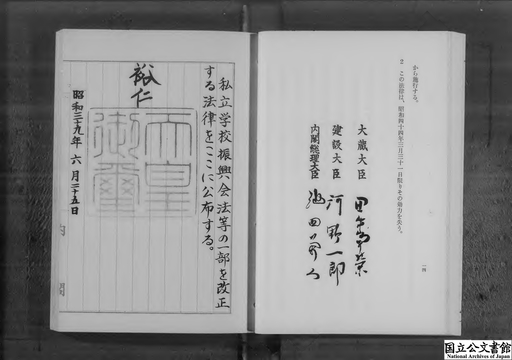 から施行する。
2 この法律は、昭和四十四年三月三十一日限りその効力を失う。
大蔵大臣
建設大臣 河野一郎
内閣総理大臣 池田勇人
一四
私立学校振興会法等の一部を改正
する法律をここに公布する。
裕仁
天皇
御璽
昭和三十九年六月二十五日
国立公文書館
National Archives of Japan